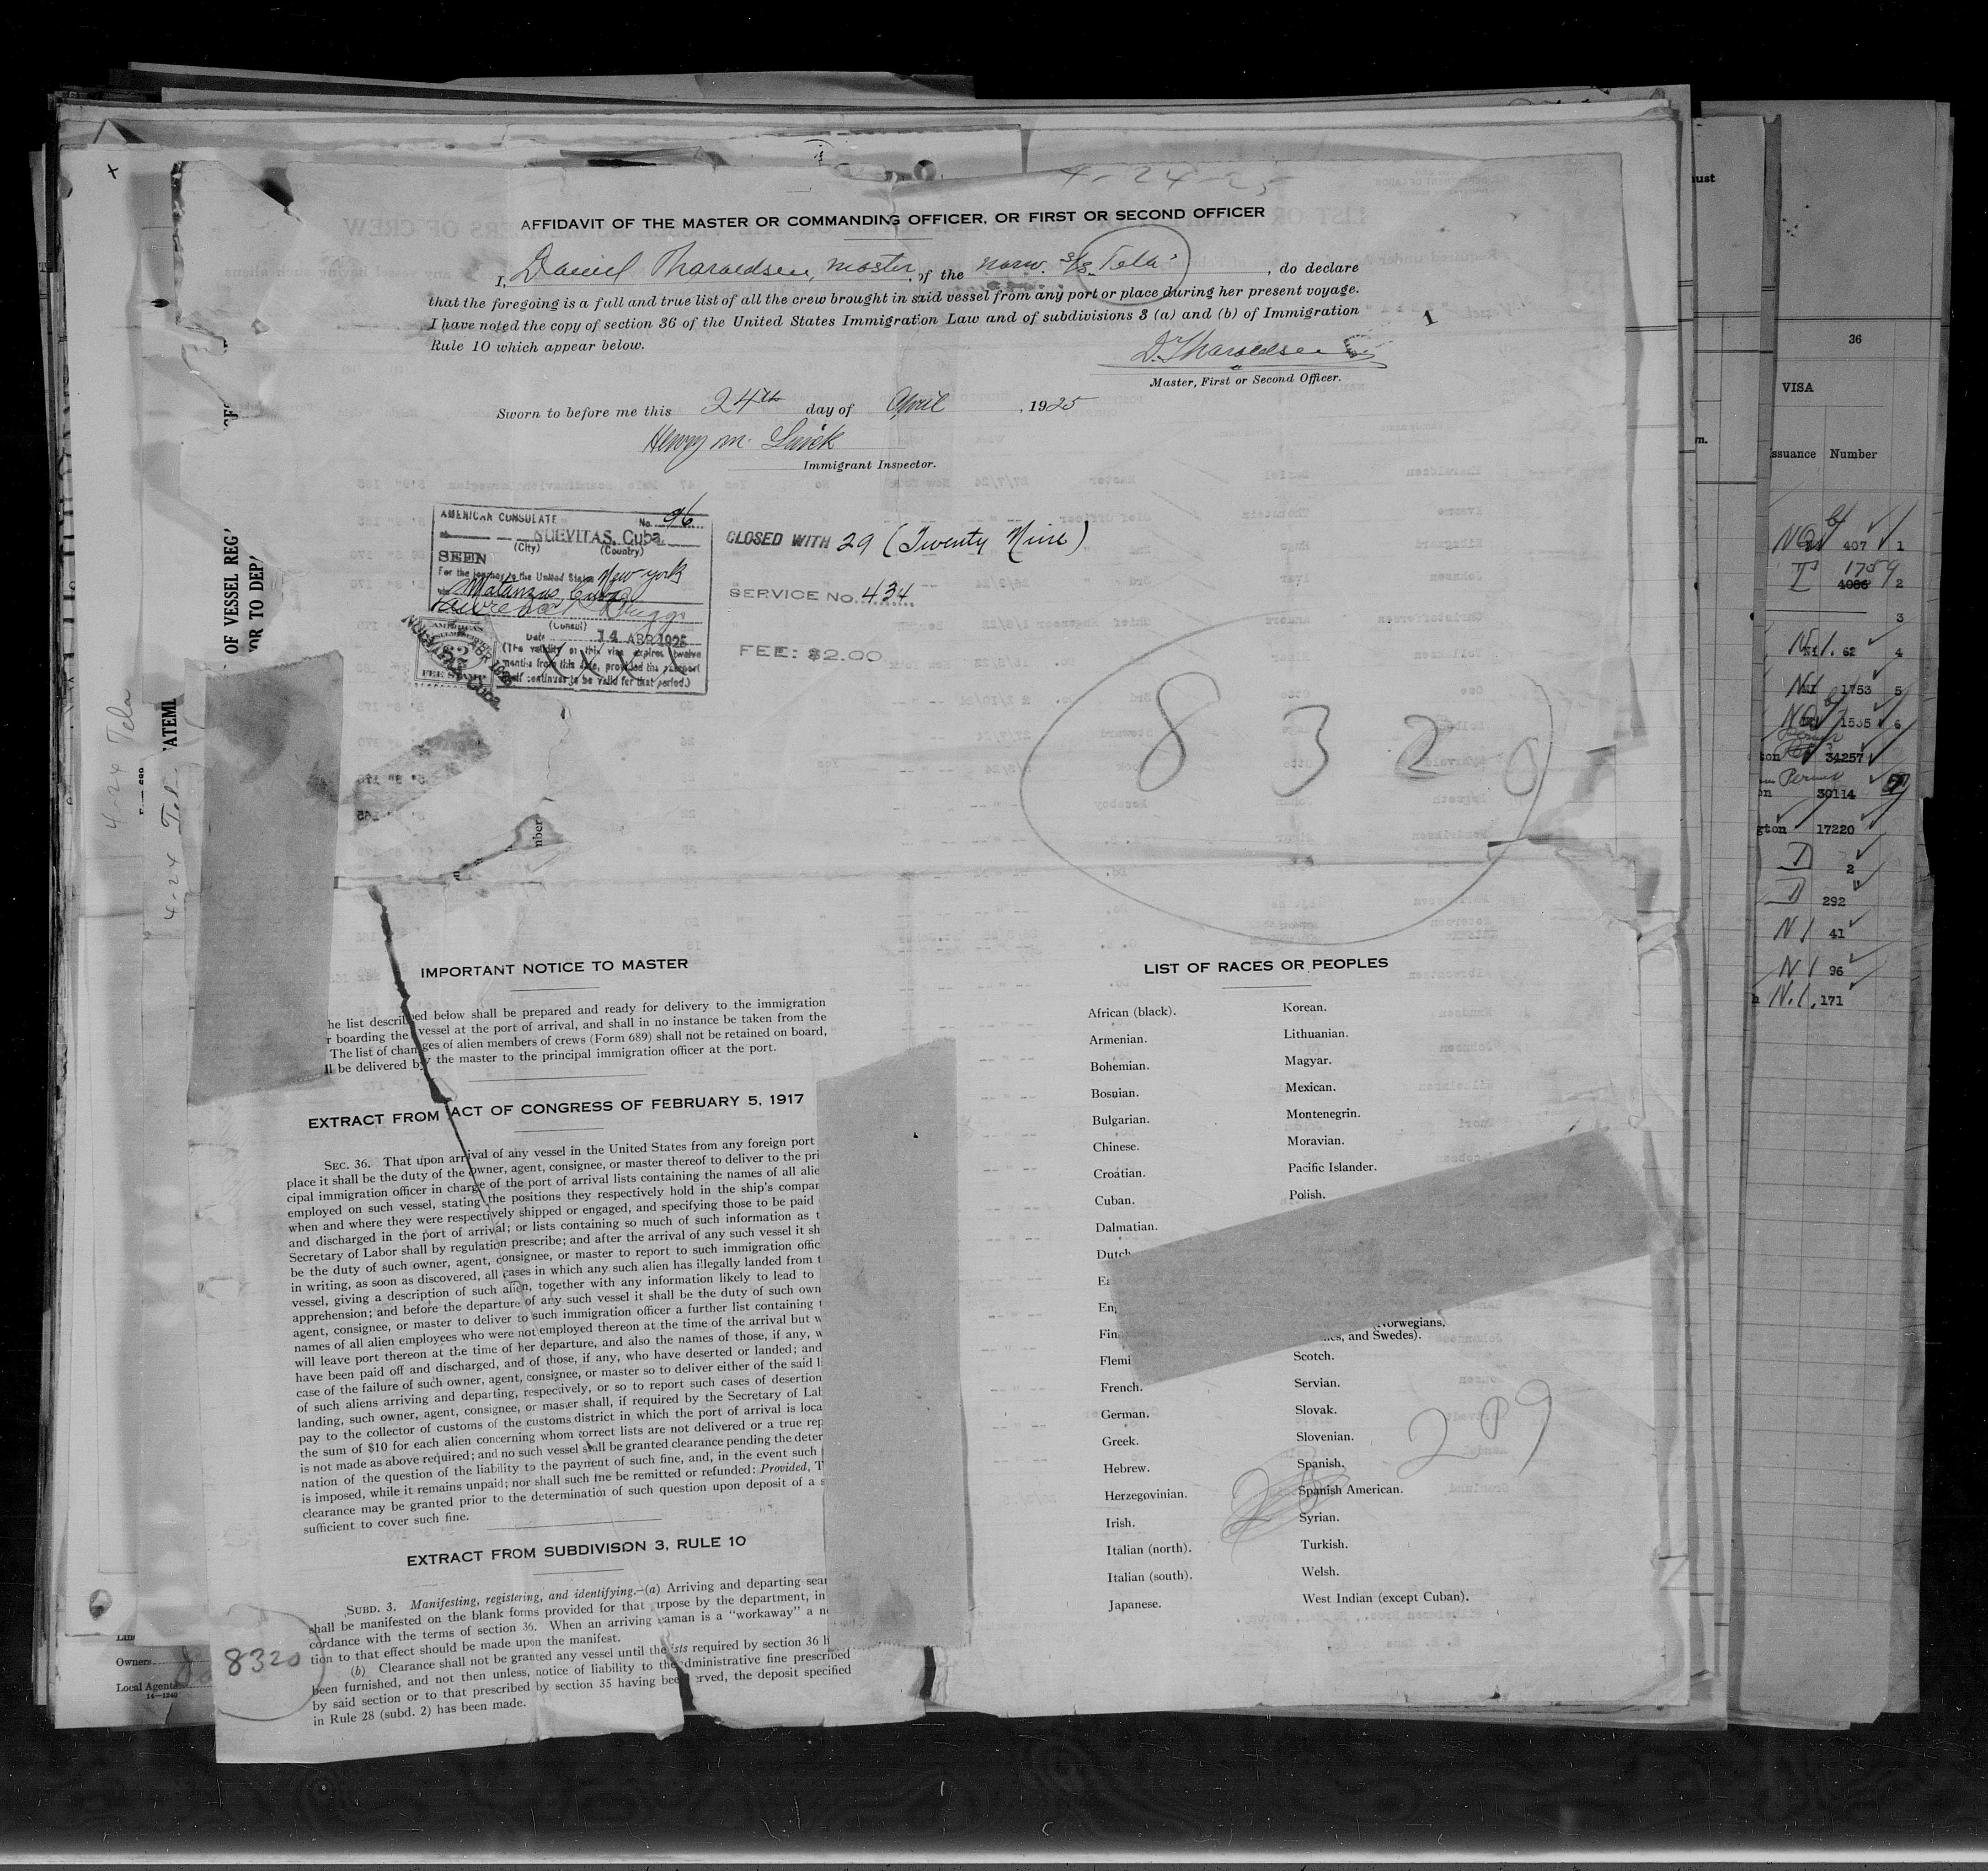 4-24-25
AFFIDAVIT OF THE MASTER OR COMMANDING OFFICER, OR FIRST OR SECOND OFFICER
I, Daniel Tharaldsen, master, of the Norw. S/S. "Tela", do declare
that the foregoing is a full and true list of all the crew brought in said vessel from any port or place during her present voyage.
I have noted the copy of section 36 of the United States Immigration Law and of subdivisions 3 (a) and (b) of Immigration
Rule 10 which appear below.
D. Tharaldsen
Master, First or Second Officer.
Sworn to before me this 24th day of April, 1925
Henry M.
Immigrant Inspector.
AMERICAN CONSULATE No. 96
NUEVITAS, Cuba.
(City) (Country)
SEEN
For the journey to the United States New York
Matanzas, Cuba
(Consul)
Date 14 ABR 1925
(The validity of this visa expires twelve
months from this date, provided the passport
itself continues to be valid for that period.)
AMERICAN
FEE STAMP
NUEVITAS, Cuba.
CLOSED WITH 29 (Twenty Nine)
SERVICE NO. 434
FEE: $2.00
8320
IMPORTANT NOTICE TO MASTER
he list described below shall be prepared and ready for delivery to the immigration
r boarding the vessel at the port of arrival, and shall in no instance be taken from the
The list of changes of alien members of crews (Form 689) shall not be retained on board,
ll be delivered by the master to the principal immigration officer at the port.
EXTRACT FROM ACT OF CONGRESS OF FEBRUARY 5, 1917
SEC. 36. That upon arrival of any vessel in the United States from any foreign port
place it shall be the duty of the owner, agent, consignee, or master thereof to deliver to the pri
cipal immigration officer in charge of the port of arrival lists containing the names of all alie
employed on such vessel, stating the positions they respectively hold in the ship's compan
when and where they were respectively shipped or engaged, and specifying those to be paid
and discharged in the port of arrival; or lists containing so much of such information as t
Secretary of Labor shall by regulation prescribe; and after the arrival of any such vessel it sh
be the duty of such owner, agent, consignee, or master to report to such immigration offic
in writing, as soon as discovered, all cases in which any such alien has illegally landed from t
vessel, giving a description of such alien, together with any information likely to lead to
apprehension; and before the departure of any such vessel it shall be the duty of such own
agent, consignee, or master to deliver to such immigration officer a further list containing t
names of all alien employees who were not employed thereon at the time of the arrival but w
will leave port thereon at the time of her departure, and also the names of those, if any, w
have been paid off and discharged, and of those, if any, who have deserted or landed; and
case of the failure of such owner, agent, consignee, or master so to deliver either of the said li
of such aliens arriving and departing, respectively, or so to report such cases of desertion
landing, such owner, agent, consignee, or master shall, if required by the Secretary of Lab
pay to the collector of customs of the customs district in which the port of arrival is loca
the sum of $10 for each alien concerning whom correct lists are not delivered or a true rep
is not made as above required; and no such vessel shall be granted clearance pending the deter
nation of the question of the liability to the payment of such fine, and, in the event such
is imposed, while it remains unpaid; nor shall such fine be remitted or refunded: Provided, T
clearance may be granted prior to the determination of such question upon deposit of a s
sufficient to cover such fine.
EXTRACT FROM SUBDIVISON 3, RULE 10
SUBD. 3. Manifesting, registering, and identifying.—(a) Arriving and departing sea
shall be manifested on the blank forms provided for that urpose by the department, in
cordance with the terms of section 36. When an arriving eaman is a "workaway" a n
tion to that effect should be made upon the manifest.
(b) Clearance shall not be granted any vessel until the ists required by section 36 h
been furnished, and not then unless, notice of liability to the dministrative fine prescribed
by said section or to that prescribed by section 35 having bee erved, the deposit specified
in Rule 28 (subd. 2) has been made.
LIST OF RACES OR PEOPLES
African (black).
Armenian.
Bohemian.
Bosnian.
Bulgarian.
Chinese.
Croatian.
Cuban.
Dalmatian.
Dutch
Ea
En
Fin
Flemi
French.
German.
Greek.
Hebrew.
Herzegovinian.
Irish.
Italian (north).
Italian (south).
Japanese.
Korean.
Lithuanian.
Magyar.
Mexican.
Montenegrin.
Moravian.
Pacific Islander.
Polish.
(Norwegians,
es, and Swedes).
Scotch.
Servian.
Slovak.
Slovenian.
Spanish.
Spanish American.
Syrian.
Turkish.
Welsh.
West Indian (except Cuban).
209
28
8320
Owners
Local Agents
14—1240
4-24 Tela
4-24 Tel
OF VESSEL REG
OR TO DEP
ATEMI
mber
ust
m.
36
VISA
ssuance Number
407 1
1759
4086 2
3
N1. 62 4
N1 1753 5
1535 6
ton 34257
Permit
on 30114
gton 17220
D 2
D 292
N1 41
N1 96
N.1. 171